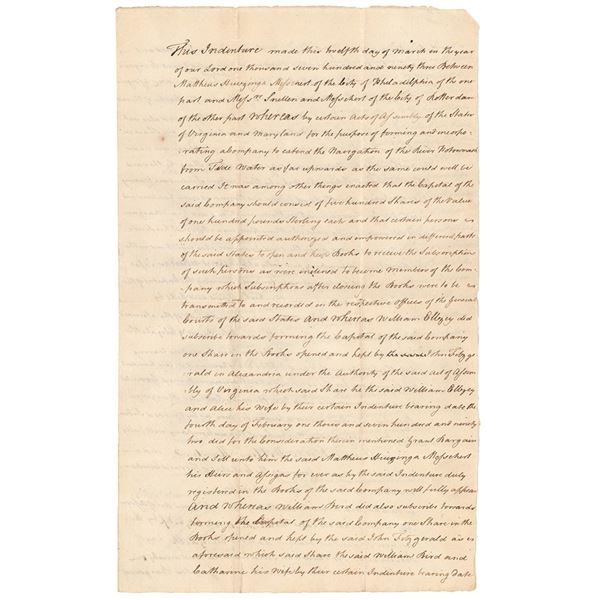 This Indenture made this twelfth day of March in the year
of our Lord one thousand seven hundred and ninety three Between
Mattheus Huizinga Messchert of the City of Philadelphia of the one
part and Mess.rs Snellen and Messchert of the City of Rotterdam
of the other part Whereas by certain Acts of Assembly of the States
of Virginia and Maryland for the purpose of forming and incorpo-
rating a Company to extend the Navigation of the River Potowmack
from Tide Water as far upwards as the same could well be
carried It was among other things enacted that the Capital of the
said Company should consist of five hundred Shares of the Value
of one hundred pounds Sterling each and that certain persons
should be appointed authorized and empowered in different parts
of the said States to open and keep Books to receive the Subscriptions
of such persons as were inclined to become Members of the Com-
pany which Subscriptions after closing the Books were to be
transmitted to and recorded in the respective Offices of the General
Courts of the said States And Whereas William Ellzey did
subscribe towards forming the Capital of the said Company
one Share in the Books opened and kept by John Fitzge
rald in Alexandria under the Authority of the said Act of Assem
bly of Virginia which said Share he the said William Ellzey
and Alice his Wife by their certain Indenture bearing date the
fourth day of February one thous and seven hundred and ninety
two did for the Consideration therein mentioned Grant Bargain
and Sell unto him the said Mattheus Huizinga Messchert
his Heirs and Assigns for ever as by the said Indenture duly
registered in the Books of the said Company will fully appear
And Whereas William Bird did also subscribe towards
forming the Capital of the said Company one Share in the
Books opened and kept by the said John Fitzgerald as is
aforesaid which said Share the said William Bird and
Catharine his Wife by their certain Indenture bearing date